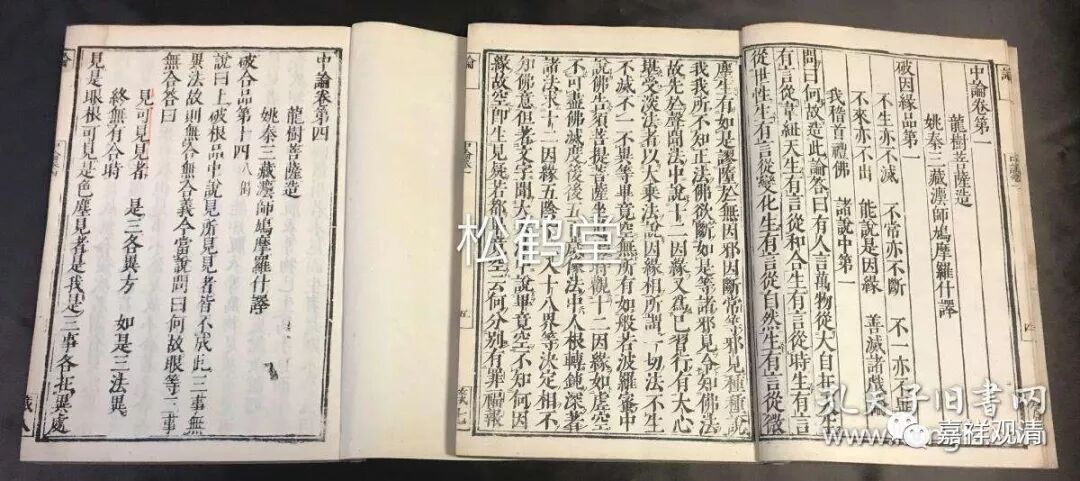 中論卷第一
龍樹菩薩造
姚秦三藏灋師鳩摩羅什譯
破因緣品第一
不生亦不滅　不常亦不斷　不一亦不異
不來亦不出　能說是因緣　善滅諸戲
我稽首禮佛　諸說中第一
問曰何故造此論答曰有人言萬物從大自在天生
有言從韋紐天生有言從和合生有言從時生有言
從世性生有言從變化生有言從自然生有言從微
塵生有如是謬墮於無因邪因斷常等邪見種種說
我我所不知正法佛欲斷如是等諸邪見令知佛法
故先於聲聞法中說十二因緣又為已習行有大心
堪受深法者以大乘法說因緣相所謂一切法不生
不滅不一不異等畢竟空無所有如般若波羅蜜中
說佛告須菩提菩薩坐道場時觀十二因緣如虛空
不可盡佛滅度後後五百歲像法中人根轉鈍深著
諸法求十二因緣五陰十二入十八界等決定相不
知佛意但著文字聞大乘法中說畢竟空不知何因
緣故空即生見疑若都畢竟空云何分別有罪福報
中論卷第四
龍樹菩薩造
姚秦三藏灋師鳩摩羅什譯
破合品第十四　八偈
說曰上破根品中說見所見見者皆不成此三事無
異法故則無合無合義今當說問曰何故眼等三事
無合答曰
見可見見者　是三各異方　如是三法異
終無有合時
見是眼根可見是色塵見者是我是三事各在異處
松鹤堂
孔夫子旧书网
嘉祥观清